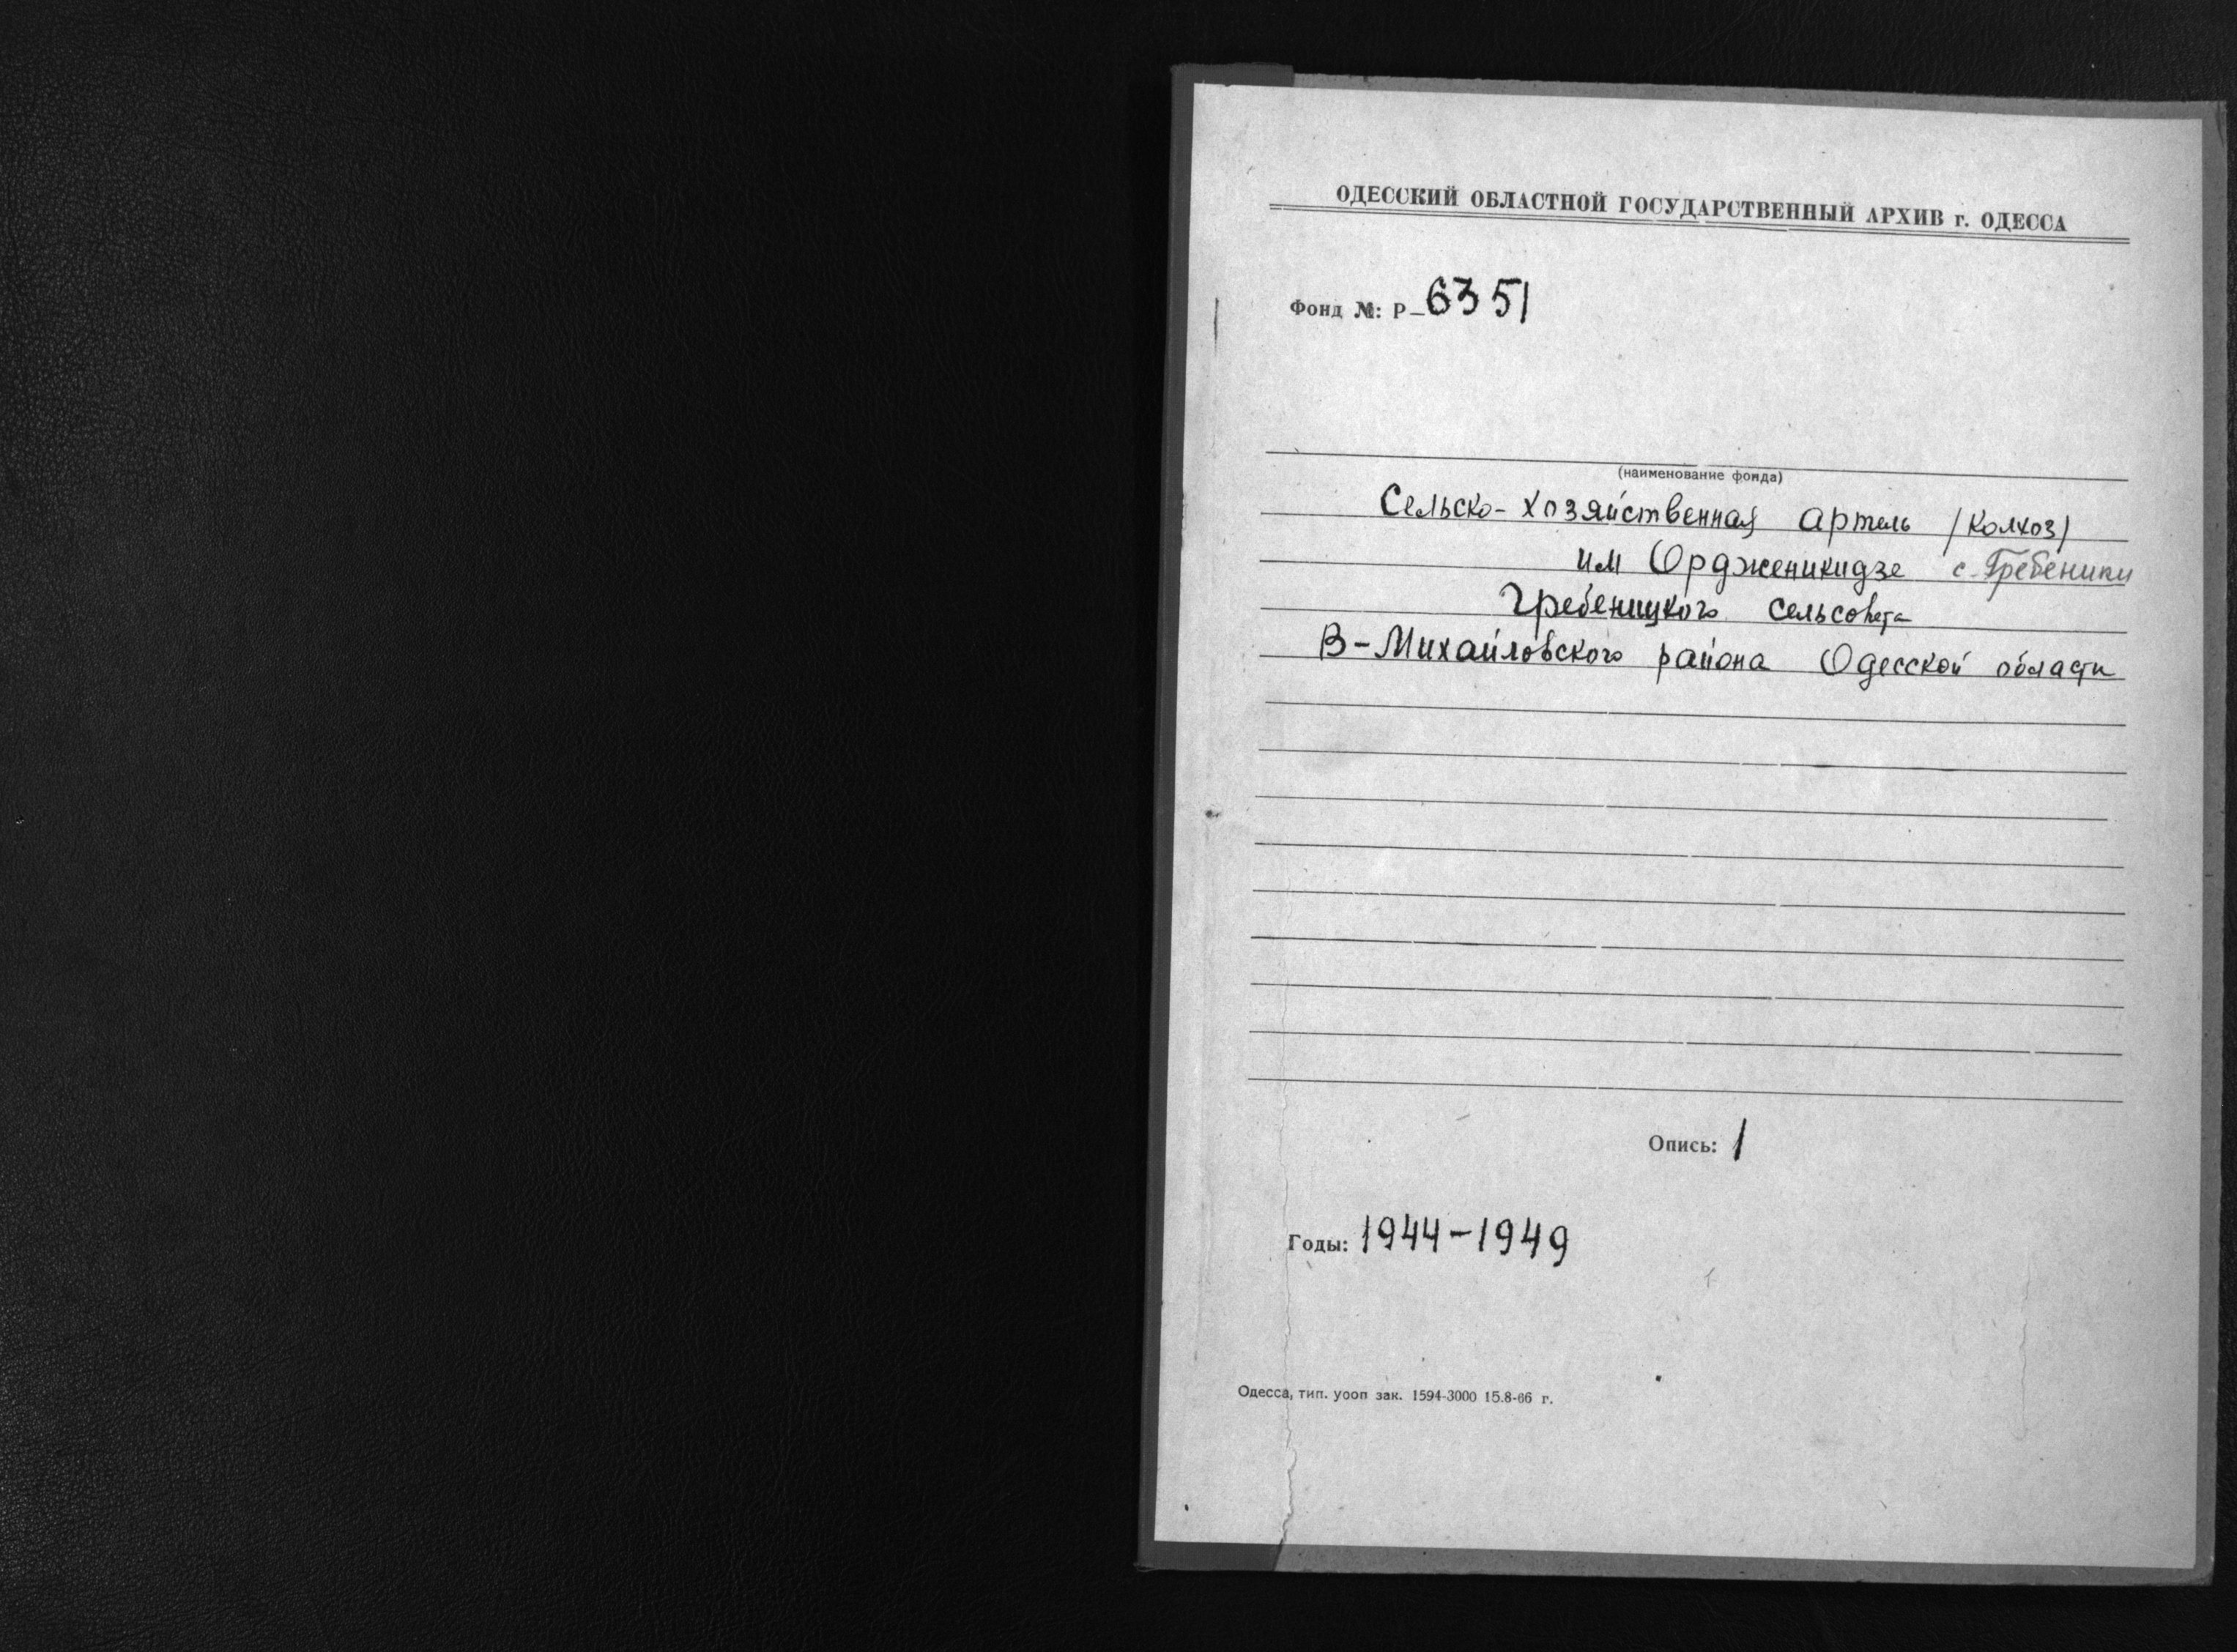 ОДЕССКИЙ ОБЛАСТНОЙ ГОСУДАРСТВЕННЫЙ АРХИВ г. ОДЕССА
Фонд №: Р-6351
(наименование фонда)
Сельско-хозяйственная артель /колхоз/
им Ордженикидзе с. Гребеники
Гребеницкого сельсовета
В-Михайловского района Одесской области
Опись: 1
Годы: 1944-1949
Одесса, тип. уооп зак. 1594-3000 15.8-66 г.